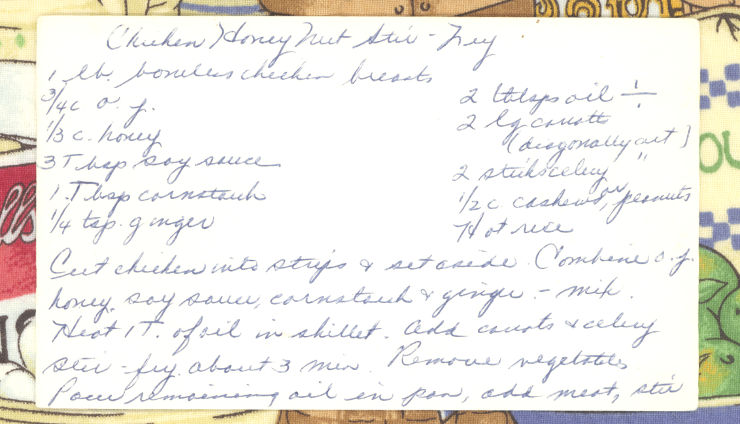 Chicken Honey Nut Stir-Fry
1 lb. boneless chicken breasts
3/4 c o. j.
1/3 c. honey
3 Tbsp soy sauce
1 Tbsp cornstarch
1/4 tsp. ginger
2 tblsps oil ÷
2 lg carrots
(diagonally cut)
2 sticks celery "
1/2 c cashews or peanuts
Hot rice
Cut chicken into strips & set aside. Combine o. j.
honey, soy sauce, cornstarch & ginger - mix.
Heat 1 T. of oil in skillet. Add carrots & celery
stir-fry about 3 min. Remove vegetables.
Pour remaining oil in pan, add meat, stir